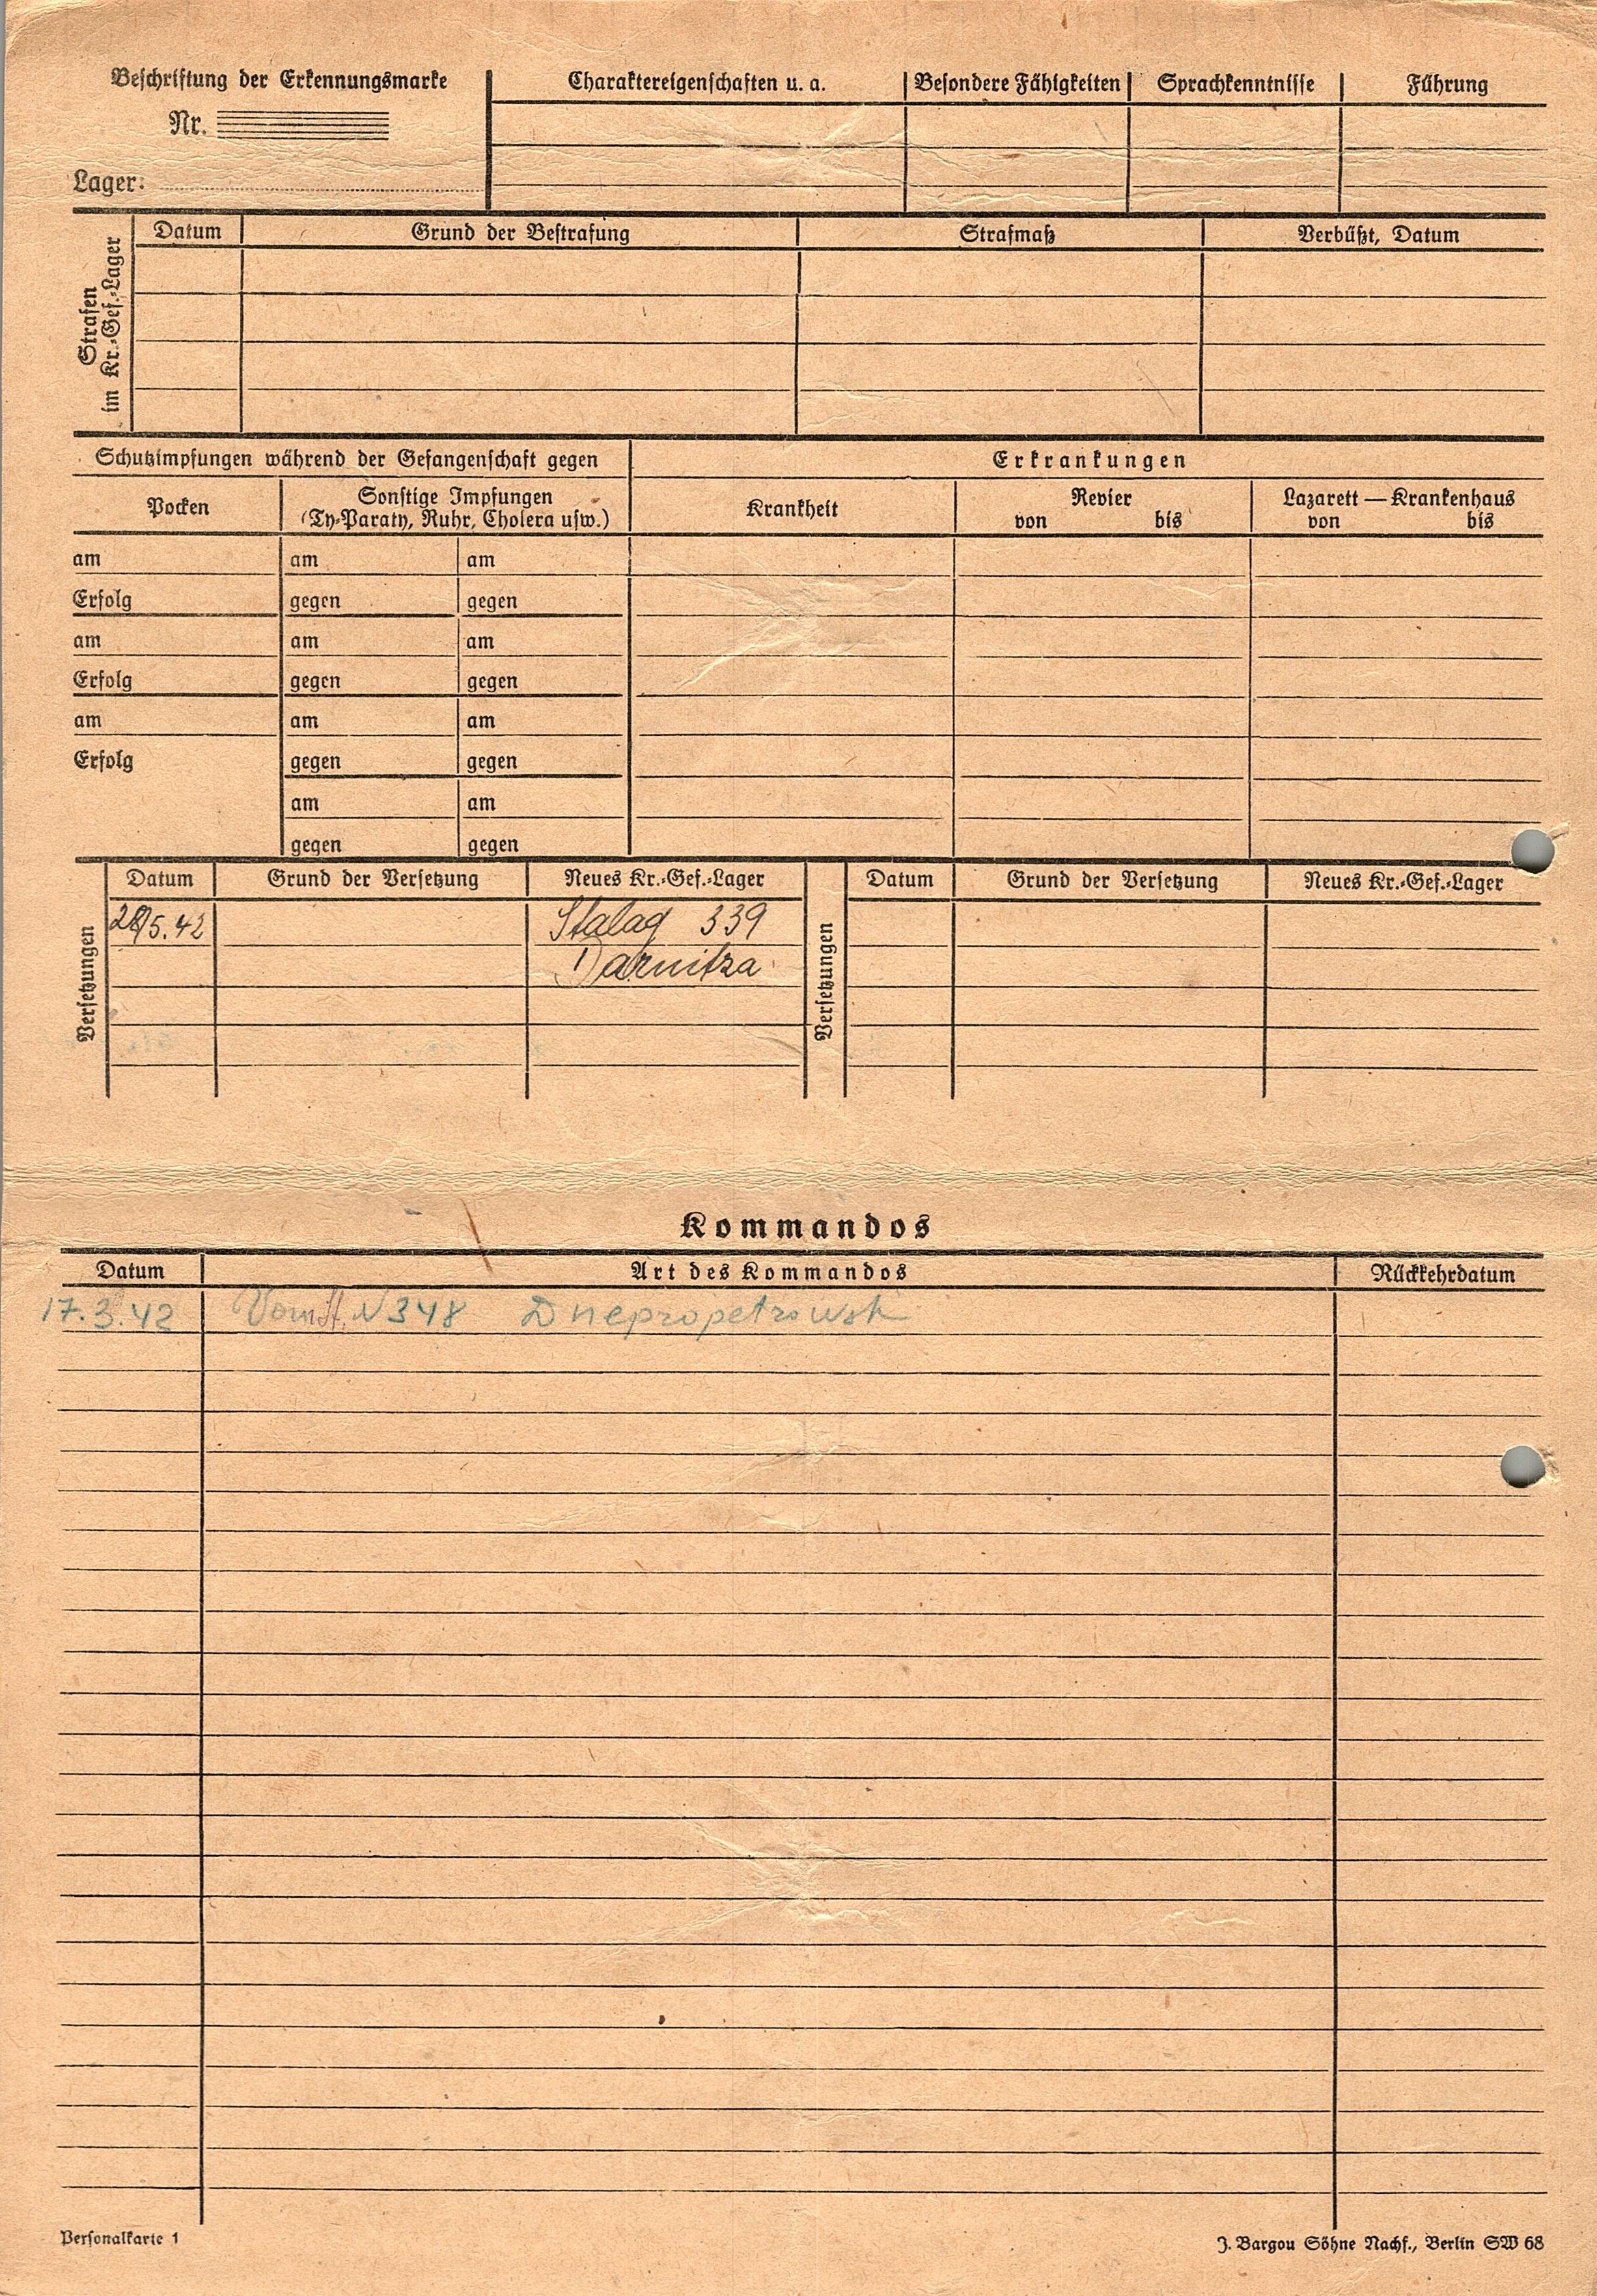 Beschriftung der Erkennungsmarke
Nr.
Lager:
Charaktereigenschaften u. a. Besondere Fähigkeiten Sprachkenntnisse Führung
Strafen
im Kr.-Gef.-Lager
Datum Grund der Bestrafung Strafmaß Verbüßt, Datum
Schutzimpfungen während der Gefangenschaft gegen Erkrankungen
Pocken
Sonstige Impfungen
(Ty-Paraty, Ruhr, Cholera usw.)
Krankheit
Revier
von bis
Lazarett — Krankenhaus
von bis
am am am
Erfolg gegen gegen
am am am
Erfolg gegen gegen
am am am
Erfolg gegen gegen
am am
gegen gegen
Versetzungen
Datum Grund der Versetzung Neues Kr.-Gef.-Lager
5.42 Stalag 339
Darnitza
Versetzungen
Datum Grund der Versetzung Neues Kr.-Gef.-Lager
Kommandos
Datum Art des Kommandos Rückkehrdatum
17.3.42 N348 Dnepropetrowsk
Personalkarte 1
J. Bargou Söhne Nachf., Berlin SW 68